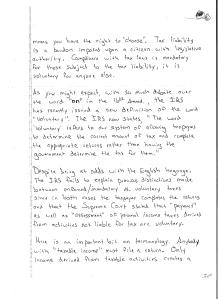 means you have the right to "choose". Tax liability
is a burden imposed upon a citizen with legislative
authority. Compliance with tax laws is mandatory
for those subject to the tax liability, it is
voluntary for anyone else.
As you might expect, with so much debate over
the word "on" in the 16th Amend, the IRS
has recently issued a new definition of the word
"voluntary". The IRS now states, "The word
'voluntary' refers to our system of allowing taxpayers
to determine the correct amount of tax and complete
the appropriate returns rather than having the
government determine the tax for them."
Despite being at odds with the English language,
the IRS fails to explain previous distinctions made
between enforced/mandatory vs voluntary taxes
since in both cases the taxpayer completes the returns
and that the Supreme Court stated that "payment"
as well as "assessment" of personal income taxes derived
from activities not liable for tax are voluntary.
Here is an important bit on terminology. Anybody
with "taxable income" must file a return. Only
income derived from taxable activities creates a